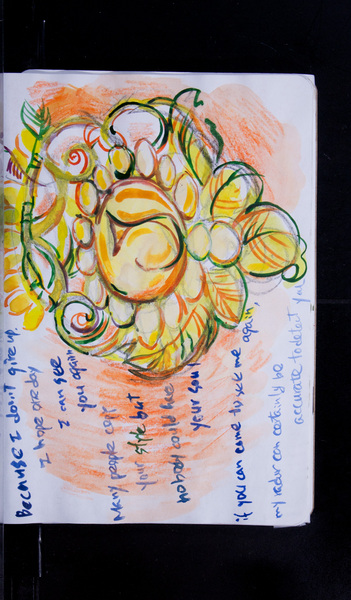 Because I don't give up.
I hope one day
I can see
you again
Many people copy
your style but
nobody could have
your soul
if you can come to see me again,
my radar can certainly be
accurate to detect you